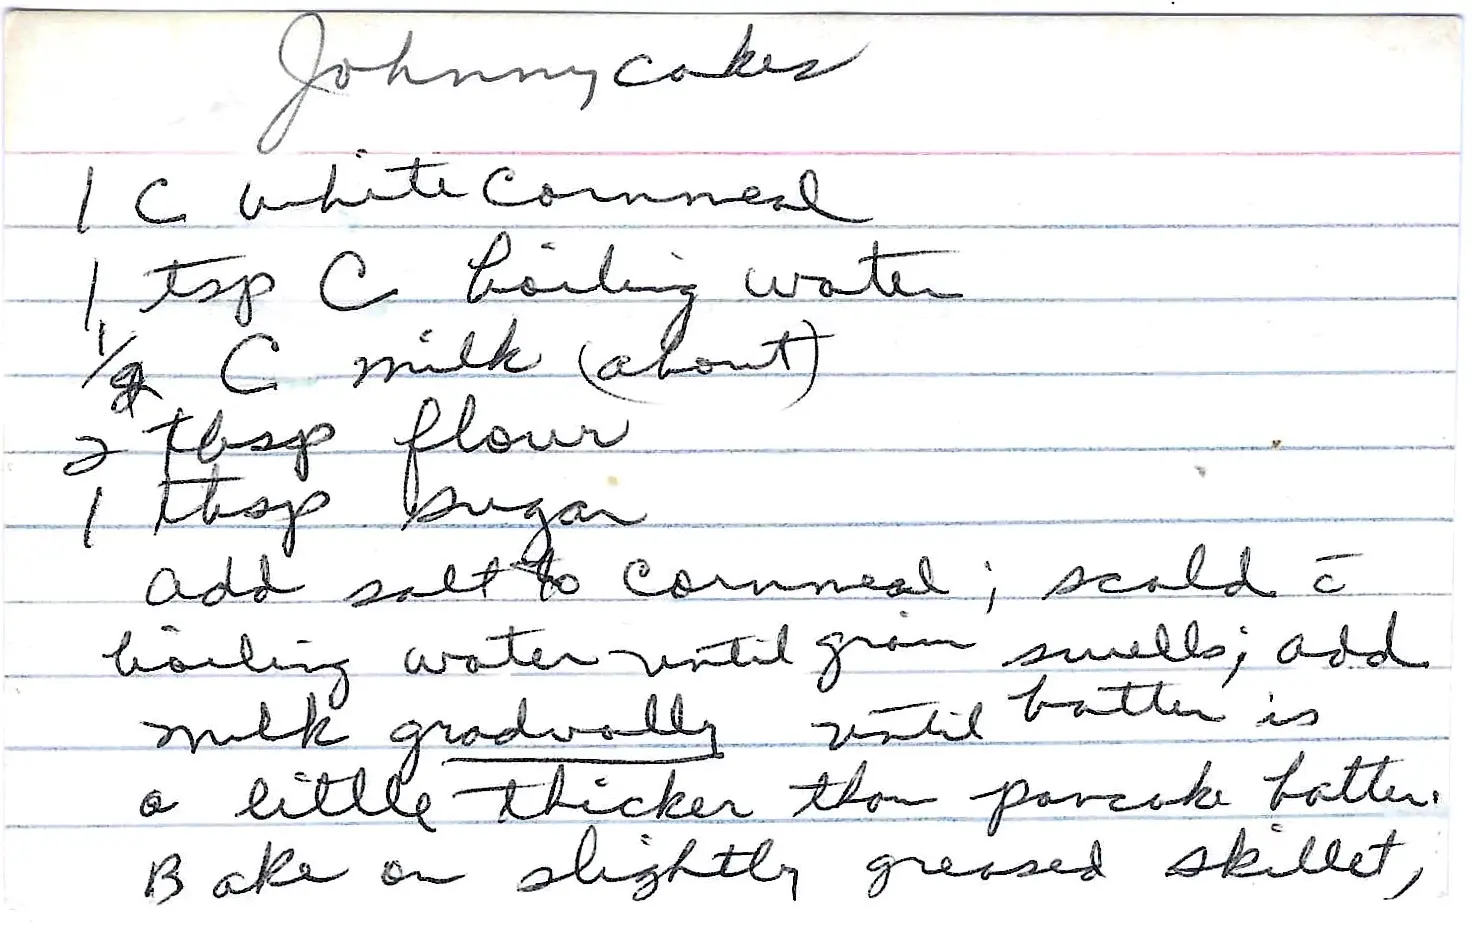 Johnny cakes
1 C white cornmeal
1 tsp C boiling water
1/2 C milk (about)
2 tbsp flour
1 tbsp sugar
add salt to cornmeal; scald c̄
boiling water until grain swells; add
milk gradually until batter is
a little thicker than pancake batter.
Bake on slightly greased skillet,